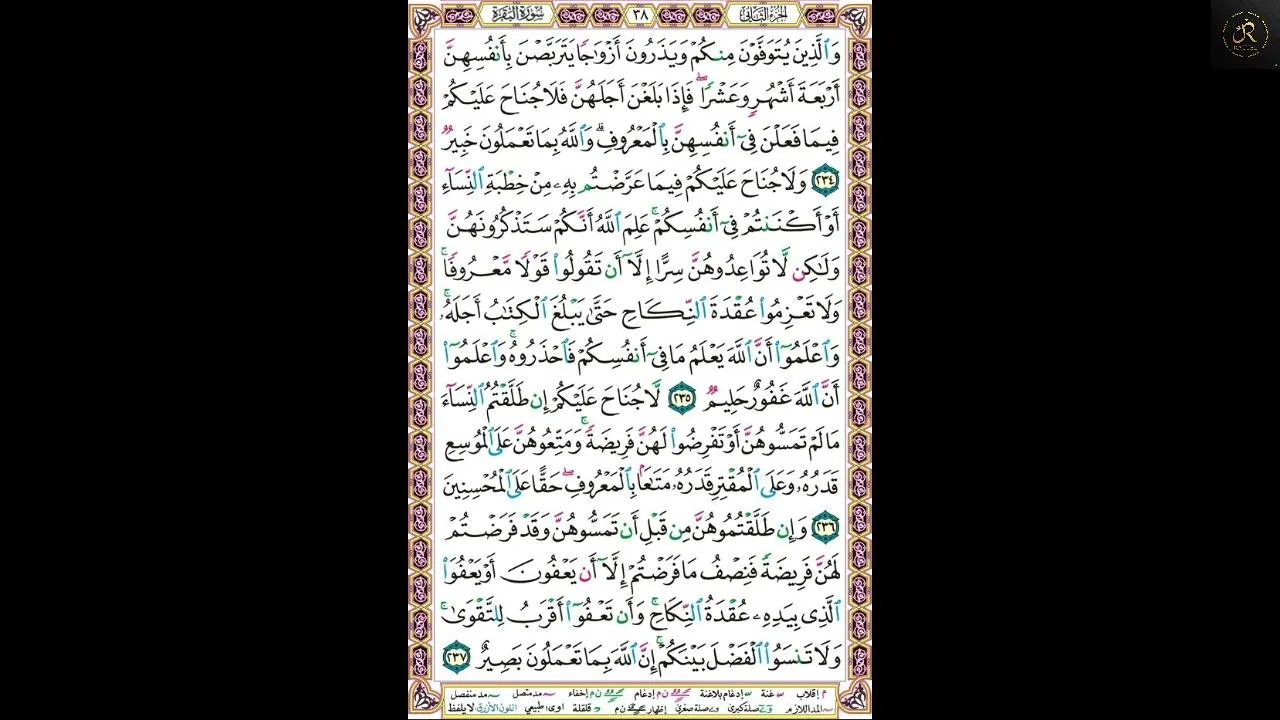 الجزء الثاني
٣٨
سورة البقرة
وَٱلَّذِينَ يُتَوَفَّوْنَ مِنكُمْ وَيَذَرُونَ أَزْوَٰجًا يَتَرَبَّصْنَ بِأَنفُسِهِنَّ
أَرْبَعَةَ أَشْهُرٍ وَعَشْرًا ۖ فَإِذَا بَلَغْنَ أَجَلَهُنَّ فَلَا جُنَاحَ عَلَيْكُمْ
فِيمَا فَعَلْنَ فِىٓ أَنفُسِهِنَّ بِٱلْمَعْرُوفِ ۗ وَٱللَّهُ بِمَا تَعْمَلُونَ خَبِيرٌ
٢٣٤ وَلَا جُنَاحَ عَلَيْكُمْ فِيمَا عَرَّضْتُم بِهِۦ مِنْ خِطْبَةِ ٱلنِّسَآءِ
أَوْ أَكْنَنتُمْ فِىٓ أَنفُسِكُمْ ۚ عَلِمَ ٱللَّهُ أَنَّكُمْ سَتَذْكُرُونَهُنَّ
وَلَٰكِن لَّا تُوَاعِدُوهُنَّ سِرًّا إِلَّآ أَن تَقُولُوا۟ قَوْلًا مَّعْرُوفًا ۚ
وَلَا تَعْزِمُوا۟ عُقْدَةَ ٱلنِّكَاحِ حَتَّىٰ يَبْلُغَ ٱلْكِتَٰبُ أَجَلَهُۥ ۚ
وَٱعْلَمُوٓا۟ أَنَّ ٱللَّهَ يَعْلَمُ مَا فِىٓ أَنفُسِكُمْ فَٱحْذَرُوهُ ۚ وَٱعْلَمُوٓا۟
أَنَّ ٱللَّهَ غَفُورٌ حَلِيمٌ ٢٣٥ لَّا جُنَاحَ عَلَيْكُمْ إِن طَلَّقْتُمُ ٱلنِّسَآءَ
مَا لَمْ تَمَسُّوهُنَّ أَوْ تَفْرِضُوا۟ لَهُنَّ فَرِيضَةً ۚ وَمَتِّعُوهُنَّ عَلَى ٱلْمُوسِعِ
قَدَرُهُۥ وَعَلَى ٱلْمُقْتِرِ قَدَرُهُۥ مَتَٰعًۢا بِٱلْمَعْرُوفِ ۖ حَقًّا عَلَى ٱلْمُحْسِنِينَ
٢٣٦ وَإِن طَلَّقْتُمُوهُنَّ مِن قَبْلِ أَن تَمَسُّوهُنَّ وَقَدْ فَرَضْتُمْ
لَهُنَّ فَرِيضَةً فَنِصْفُ مَا فَرَضْتُمْ إِلَّآ أَن يَعْفُونَ أَوْ يَعْفُوَا۟
ٱلَّذِى بِيَدِهِۦ عُقْدَةُ ٱلنِّكَاحِ ۚ وَأَن تَعْفُوٓا۟ أَقْرَبُ لِلتَّقْوَىٰ ۚ
وَلَا تَنسَوُا۟ ٱلْفَضْلَ بَيْنَكُمْ ۚ إِنَّ ٱللَّهَ بِمَا تَعْمَلُونَ بَصِيرٌ ٢٣٧
م إقلاب غنة إدغام بلاغنة ن م إدغام ن م إخفاء مد متصل مد منفصل
المد اللازم صلة كبرى صلة صغرى إظهار ن م قلقلة اوى، طبيعي اللون الأزرق لا يلفظ